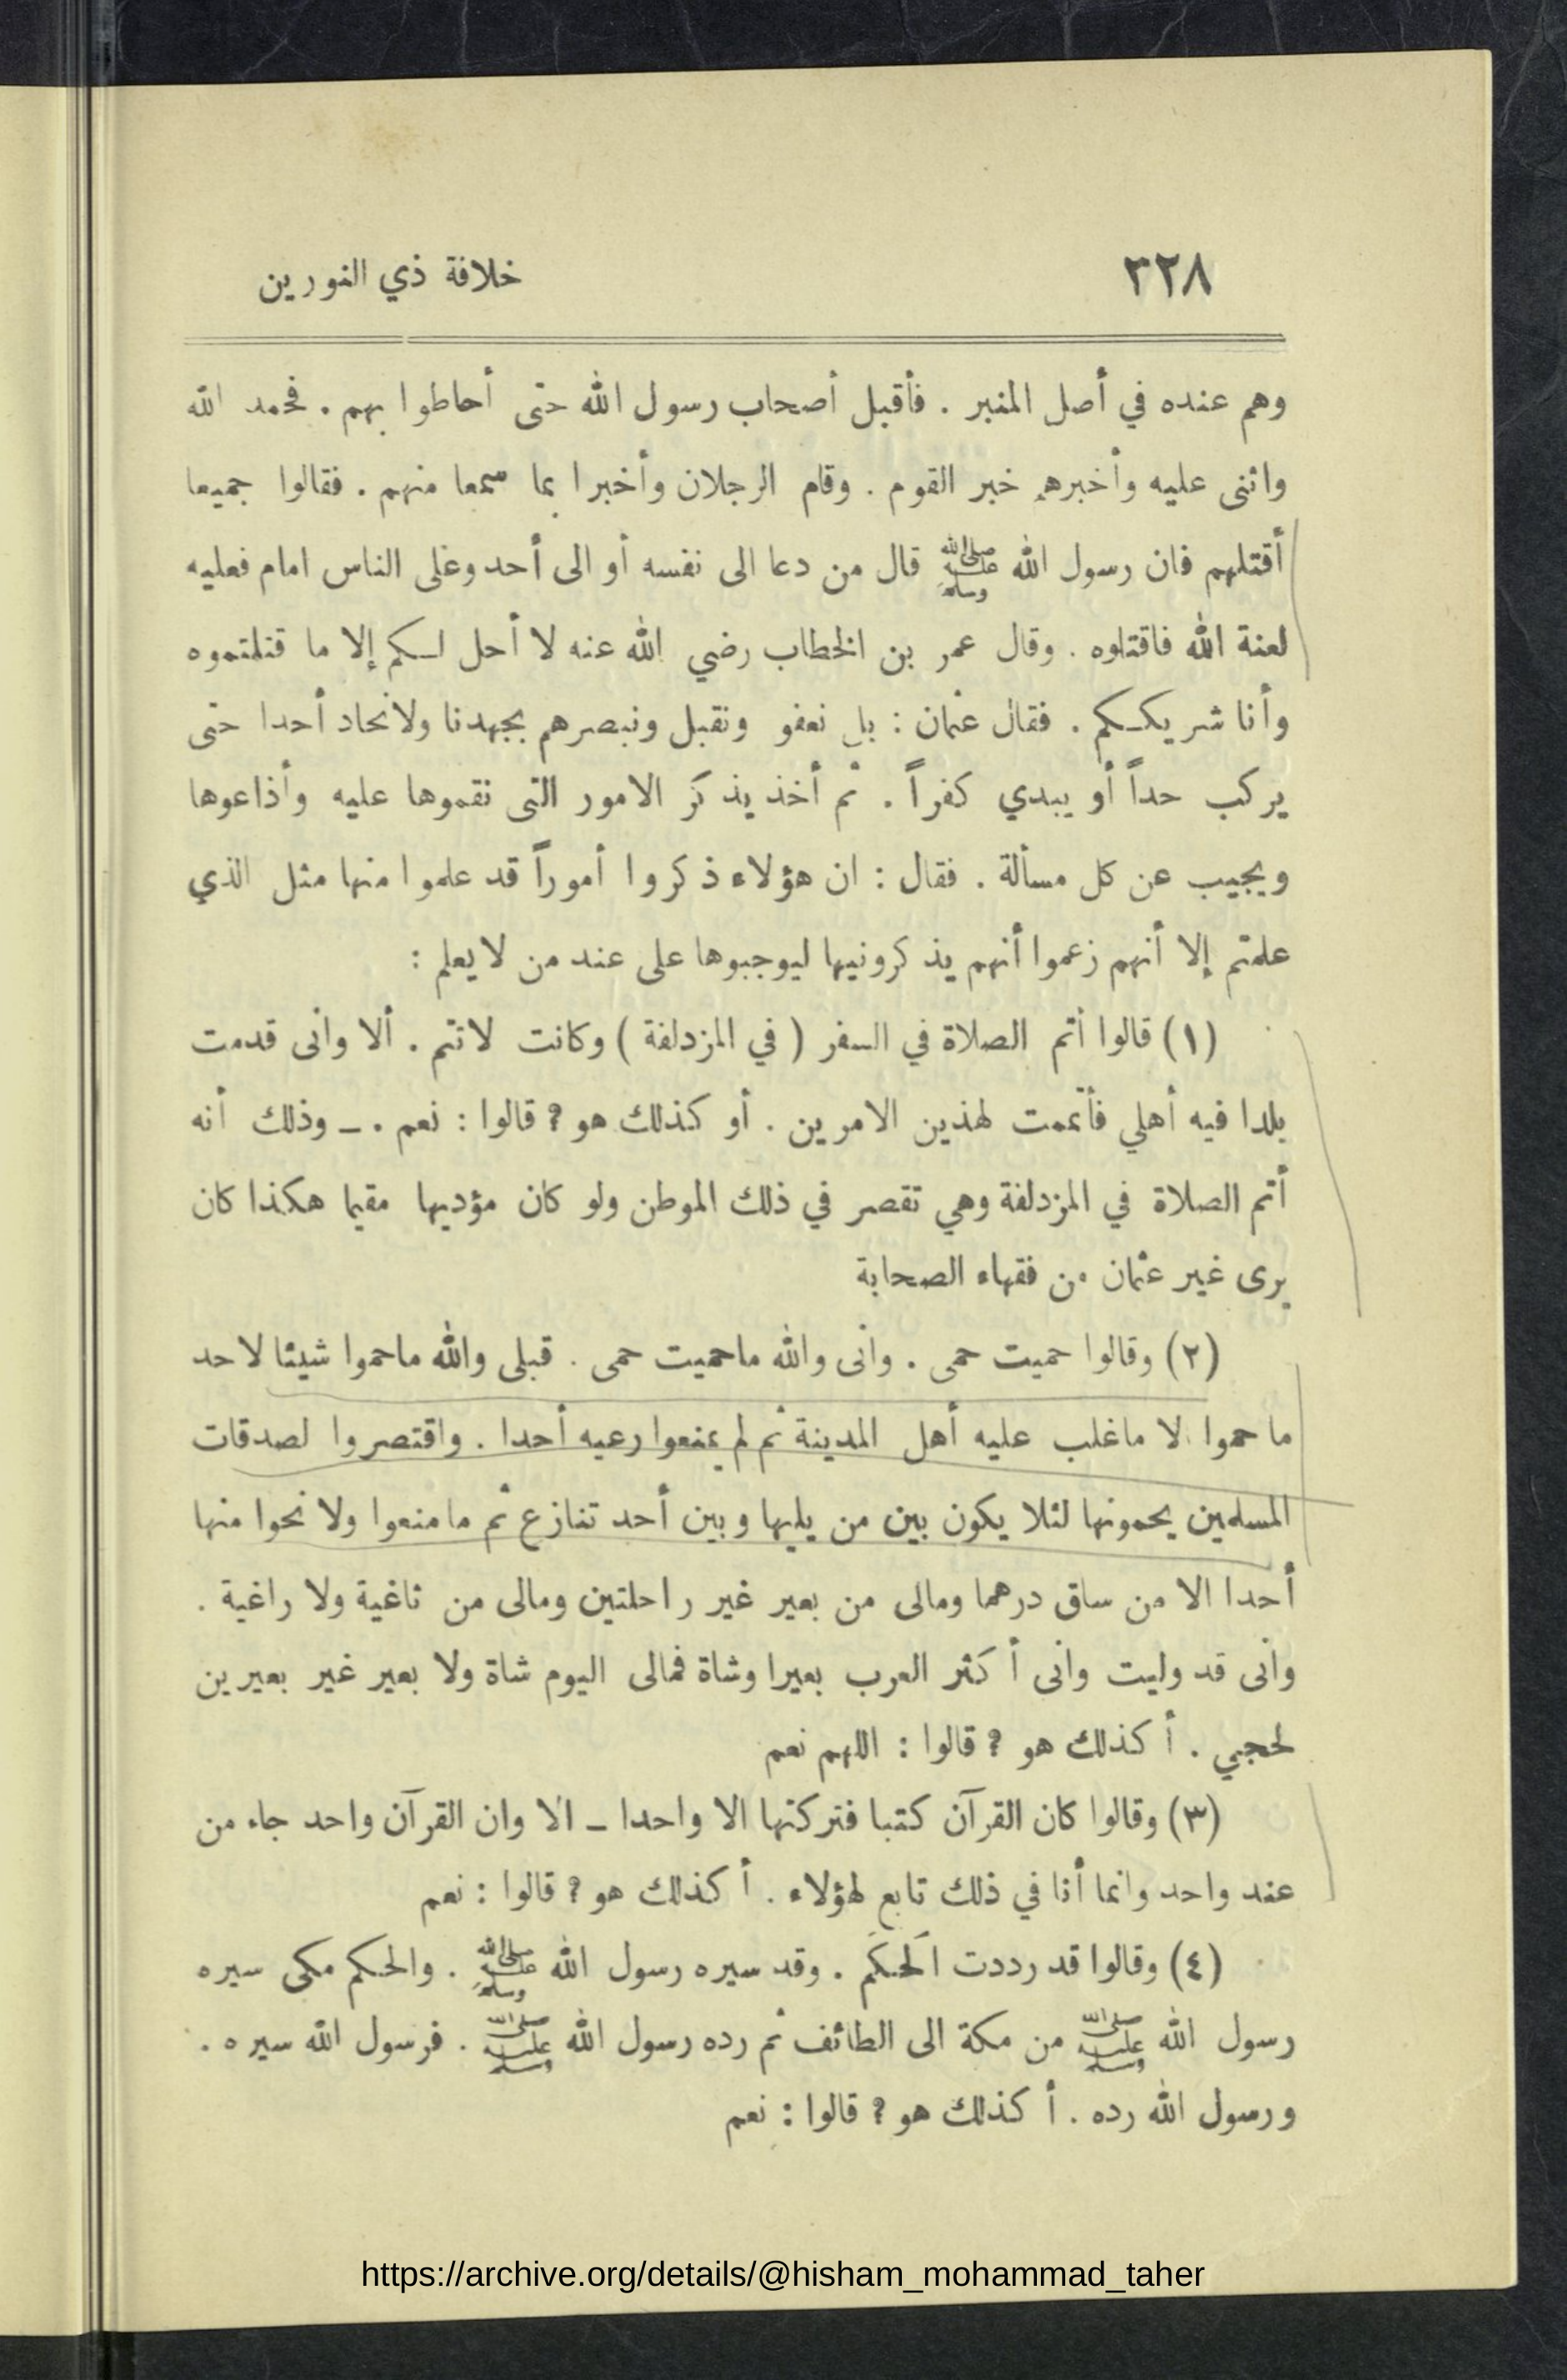 ٣٢٨ خلافة ذي النورين
وهم عنده في أصل المنبر . فأقبل أصحاب رسول الله حتى أحاطوا بهم . فحمد الله
واثنى عليه وأخبرهم خبر القوم . وقام الرجلان وأخبرا بما سمعا منهم . فقالوا جميعا
أقتلهم فان رسول الله ﷺ قال من دعا الى نفسه أو الى أحد وعلى الناس امام فعليه
لعنة الله فاقتلوه . وقال عمر بن الخطاب رضي الله عنه لا أحل لكم إلا ما قتلتموه
وأنا شريككم . فقال عثمان : بل نعفو ونقبل ونبصرهم بجهدنا ولا نحاد أحدا حتى
يركب حداً أو يبدي كفراً . ثم أخذ يذكر الامور التى نقموها عليه وأذاعوها
ويجيب عن كل مسألة . فقال : ان هؤلاء ذكروا أموراً قد علموا منها مثل الذي
علمتم إلا أنهم زعموا أنهم يذكرونيها ليوجبوها على عند من لا يعلم :
(١) قالوا أتم الصلاة في السفر ( في المزدلفة ) وكانت لا تتم . ألا وأنى قدمت
بلدا فيه أهلي فأتممت لهذين الامرين . أو كذلك هو ? قالوا : نعم . ـ وذلك أنه
أتم الصلاة في المزدلفة وهي تقصر في ذلك الموطن ولو كان مؤديها مقيما هكذا كان
يرى غير عثمان من فقهاء الصحابة
(٢) وقالوا حميت حمى . وأنى والله ما حميت حمى . قبلى والله ما حموا شيئا لاحد
ما حموا الا ما غلب عليه أهل المدينة ثم لم يمنعوا رعيه أحدا . واقتصروا لصدقات
المسلمين يحمونها لئلا يكون بين من يليها وبين أحد تنازع ثم ما منعوا ولا نحوا منها
أحدا الا من ساق درهما ومالى من بعير غير راحلتين ومالى من ثاغية ولا راغية .
وأنى قد وليت وانى أكثر العرب بعيرا وشاة فمالى اليوم شاة ولا بعير غير بعيرين
لحجي . أكذلك هو ? قالوا : اللهم نعم
(٣) وقالوا كان القرآن كتبا فتركتها الا واحدا ـ الا وان القرآن واحد جاء من
عند واحد وانما أنا في ذلك تابع لهؤلاء . أكذلك هو ? قالوا : نعم
(٤) وقالوا قد رددت الحكم . وقد سيره رسول الله ﷺ . والحكم مكى سيره
رسول الله ﷺ من مكة الى الطائف ثم رده رسول الله ﷺ . فرسول الله سيره .
ورسول الله رده . أكذلك هو ? قالوا : نعم
https://archive.org/details/@hisham_mohammad_taher